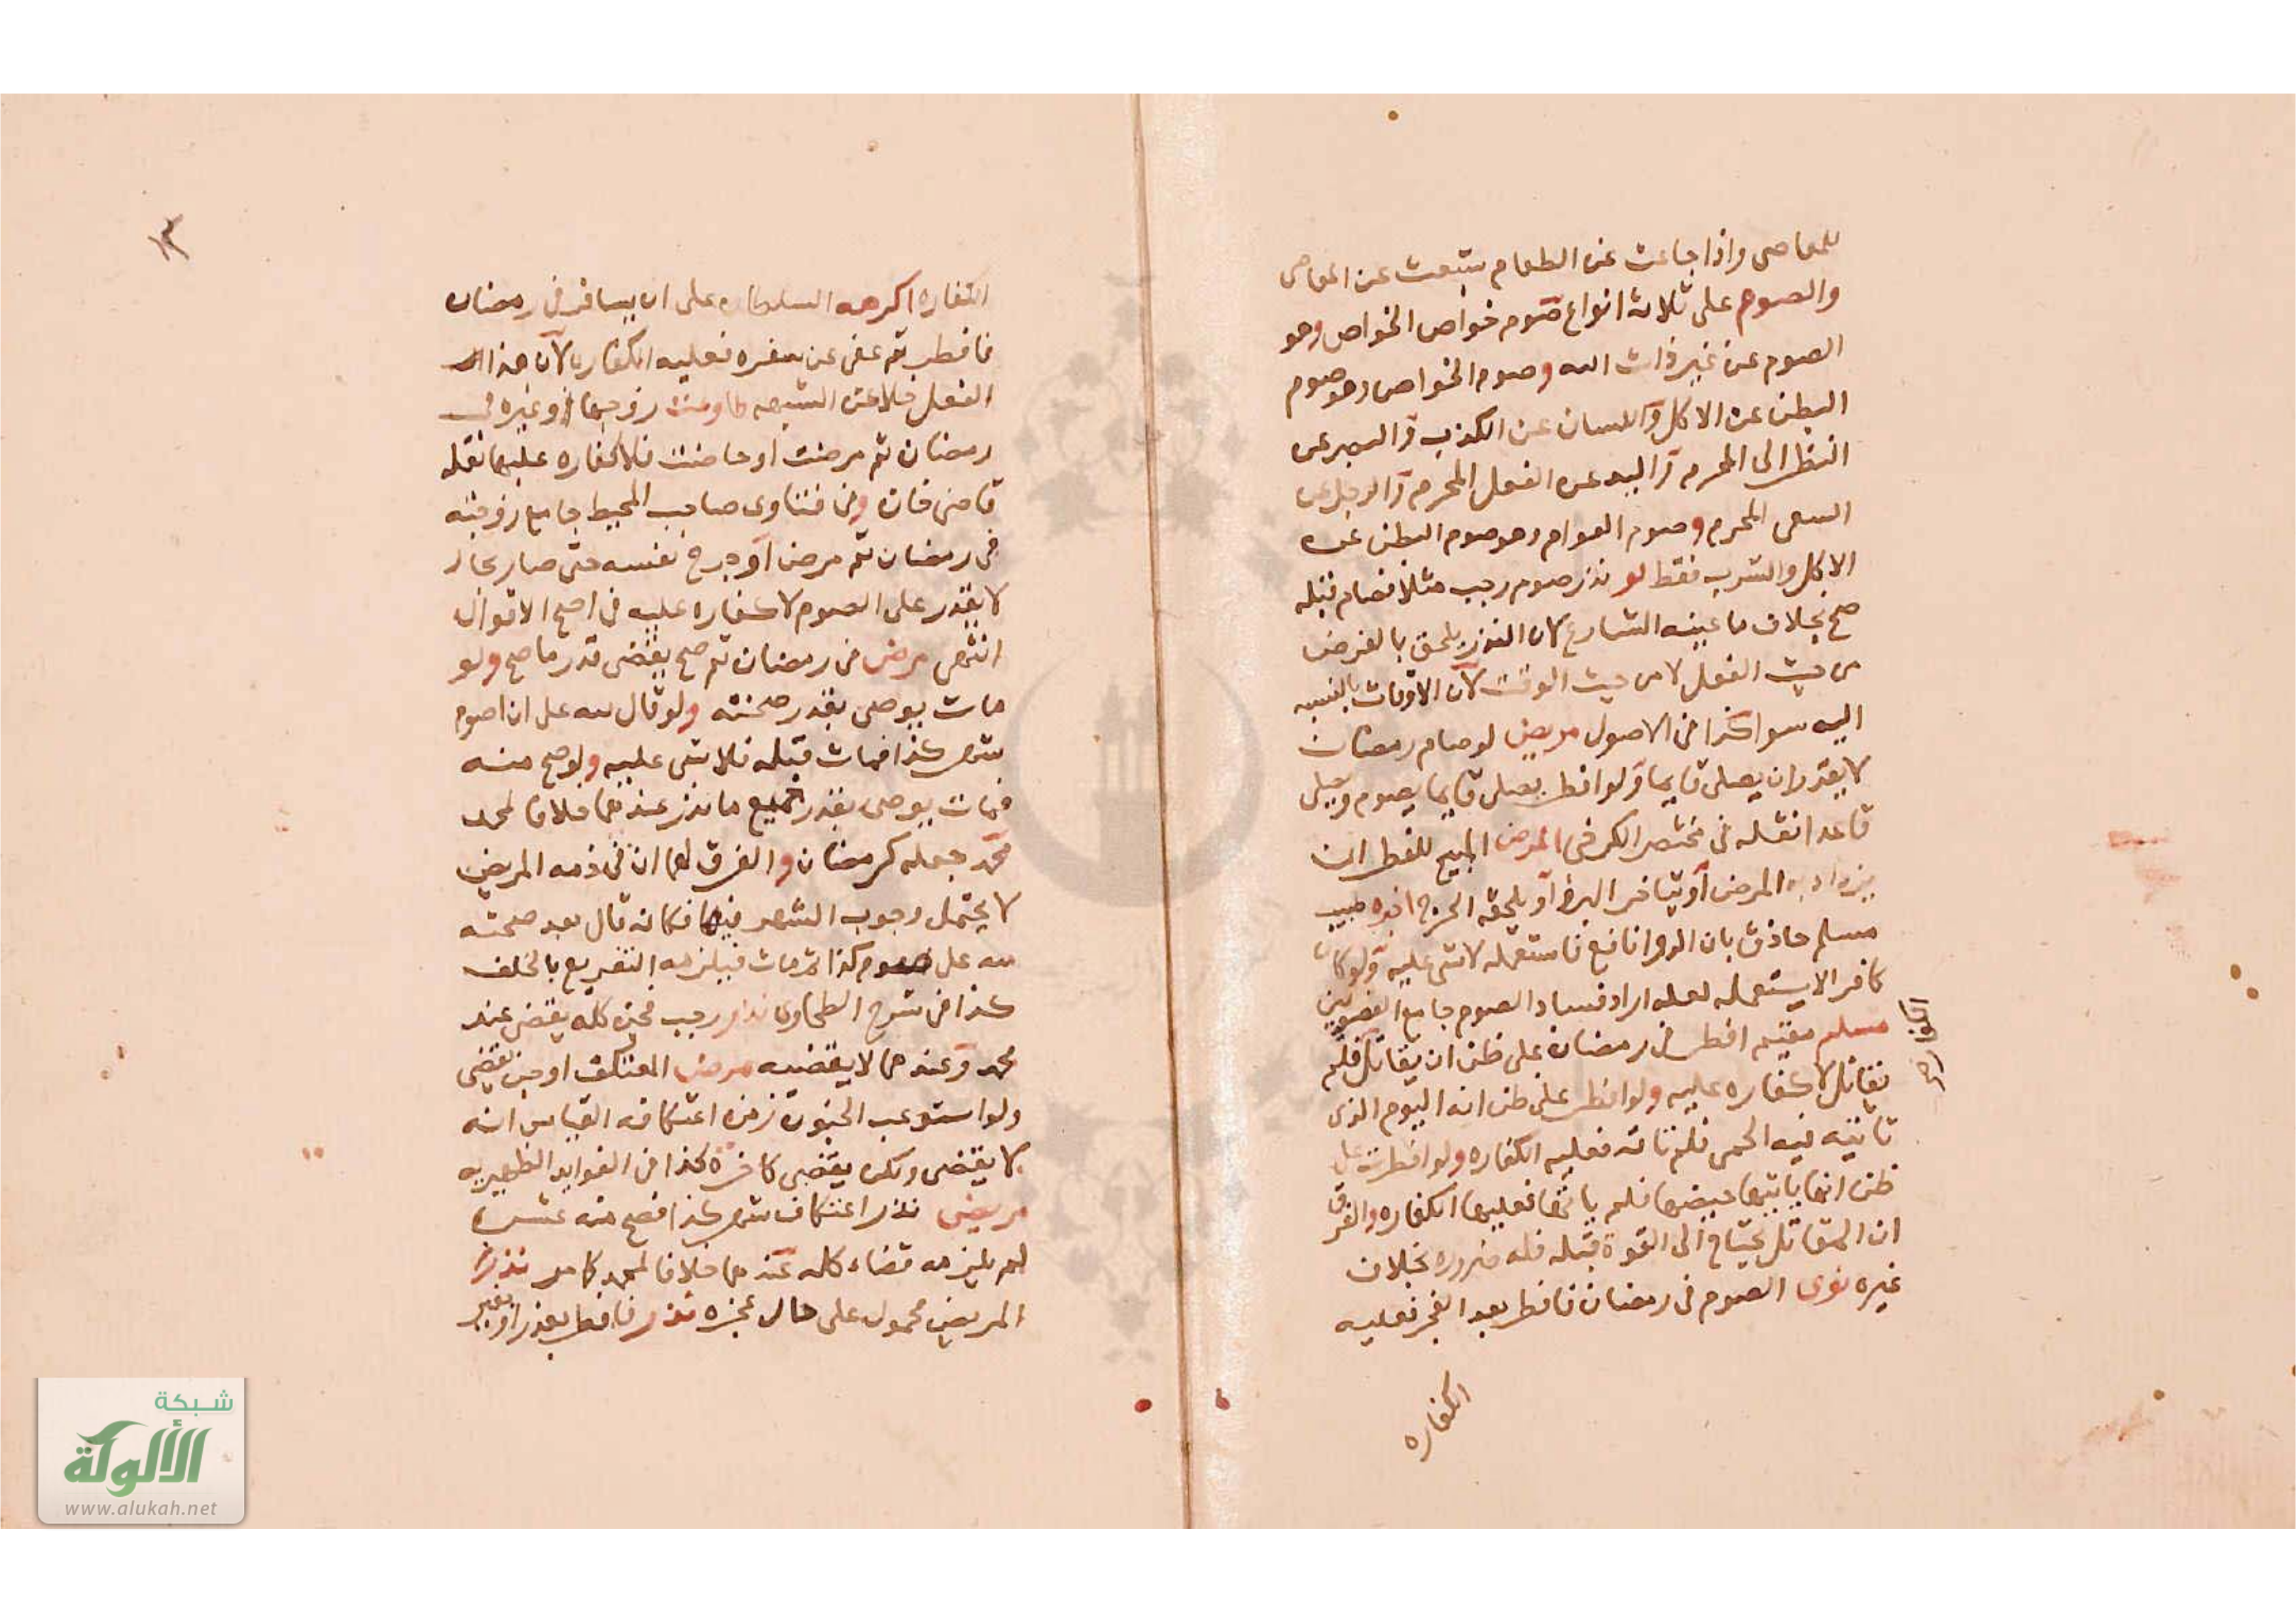 للمعاصى واذا جاعت عن الطعام شبعت عن المعاصى
والصوم على ثلاثة انواع صوم خواص الخواص وهو
الصوم عن غير ذات الله وصوم الخواص وهو صوم
البطن عن الاكل واللسان عن الكذب والبصر عن
النظر الى المحرم واليد عن الفعل المحرم والرجل عن
السعى المحرم وصوم العوام وهو صوم البطن عن
الاكل والشرب فقط لو نذر صوم رجب مثلا فصام قبله
صح بخلاف ما عينه الشارع لان النذر يلحق بالفرض
من حيث الفعل لا من حيث الوقت لان الاوقات بالنسبه
اليه سوا كذا فى الاصول مريض لو صام رمضان
لا يقدر ان يصلى قايما ولو افطر يصلى قايما يصوم ويصلى
قاعدا نقله فى مختصر الكرخى المرض المبيح للفطر ان
يزداد به المرض او يتاخر البرؤ او يلحقه الحرج اخبره طبيب
مسلم حاذق بان الدوا نافع فاستعمله لا شى عليه ولو كان
كافرا لا يستعمله لعله اراد فساد الصوم جامع الفصولين
مسلم مقيم افطر فى رمضان على ظن ان يقاتل فلم
يقاتل لا كفاره عليه ولو افطر على ظن انه اليوم الذى
تاتيه فيه الحمى فلم تاته فعليه الكفاره ولو افطرت على
ظن انها ياتيها حيضها فلم ياتها فعليها الكفاره والفرق
ان المقاتل يحتاج الى القوة قبله فله ضروره بخلاف
غيره نوى الصوم فى رمضان فافطر بعد الفجر فعليه
الكفاره
١٣
الكفاره اكرهه السلطان على ان يسافر فى رمضان
فافطر ثم عفى عن سفره فعليه الكفاره لان هذا
الفعل خلا عن الشبهه طاوعت زوجها او غيره فى
رمضان ثم مرضت او حاضت فلا كفاره عليها نقله
قاضى خان وفى فتاوى صاحب المحيط جامع زوجته
فى رمضان ثم مرض او جرح نفسه حتى صار بحال
لا يقدر على الصوم لا كفاره عليه فى اصح الاقوال
انتهى مرض فى رمضان ثم صح يقضى قدر ما صح ولو
مات يوصى بقدر صحته ولو قال لله على ان اصوم
شهر كذا فمات قبله فلا شى عليه ولو صح منه
فمات يوصى بقدر جميع ما نذر عندهما خلافا لمحمد
محمد جعله كرمضان والفرق لهما ان فى ذمه المريض
لا يحتمل وجوب الشهر فيها فكانه قال بعد صحته
لله على صوم كذا ثم مات فيلزمه التفريع بالخلف
كذا فى شرح الطحاوى نذر رجب فجن كله يقضى عند
محمد وعندهما لا يقضيه مرض المعتكف او جن يقضى
ولو استوعب الجنون زمن اعتكافه القياس انه
لا يقضى ولكن يقضى كذا فى الفوايد الظهيريه
مريض نذر اعتكاف شهر كذا فصح منه عشره
لم يلزمه قضاء كله عندهما خلافا لمحمد كما مر نذر
المريض محمول على حال عجزه نذر فافطر بعذر او بغير
شبكة
الألوكة
www.alukah.net